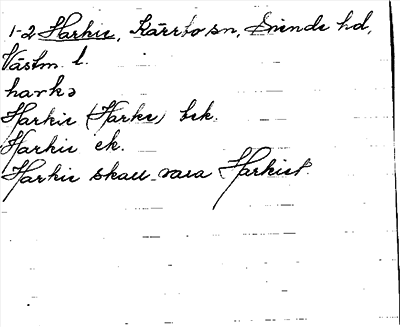 1-2 Harkie, Kärrbo sn, Siende hd,
Västm. l.
harkə
Harkie (Harke) bek.
Harkie ek.
Harkie skall vara Harkie